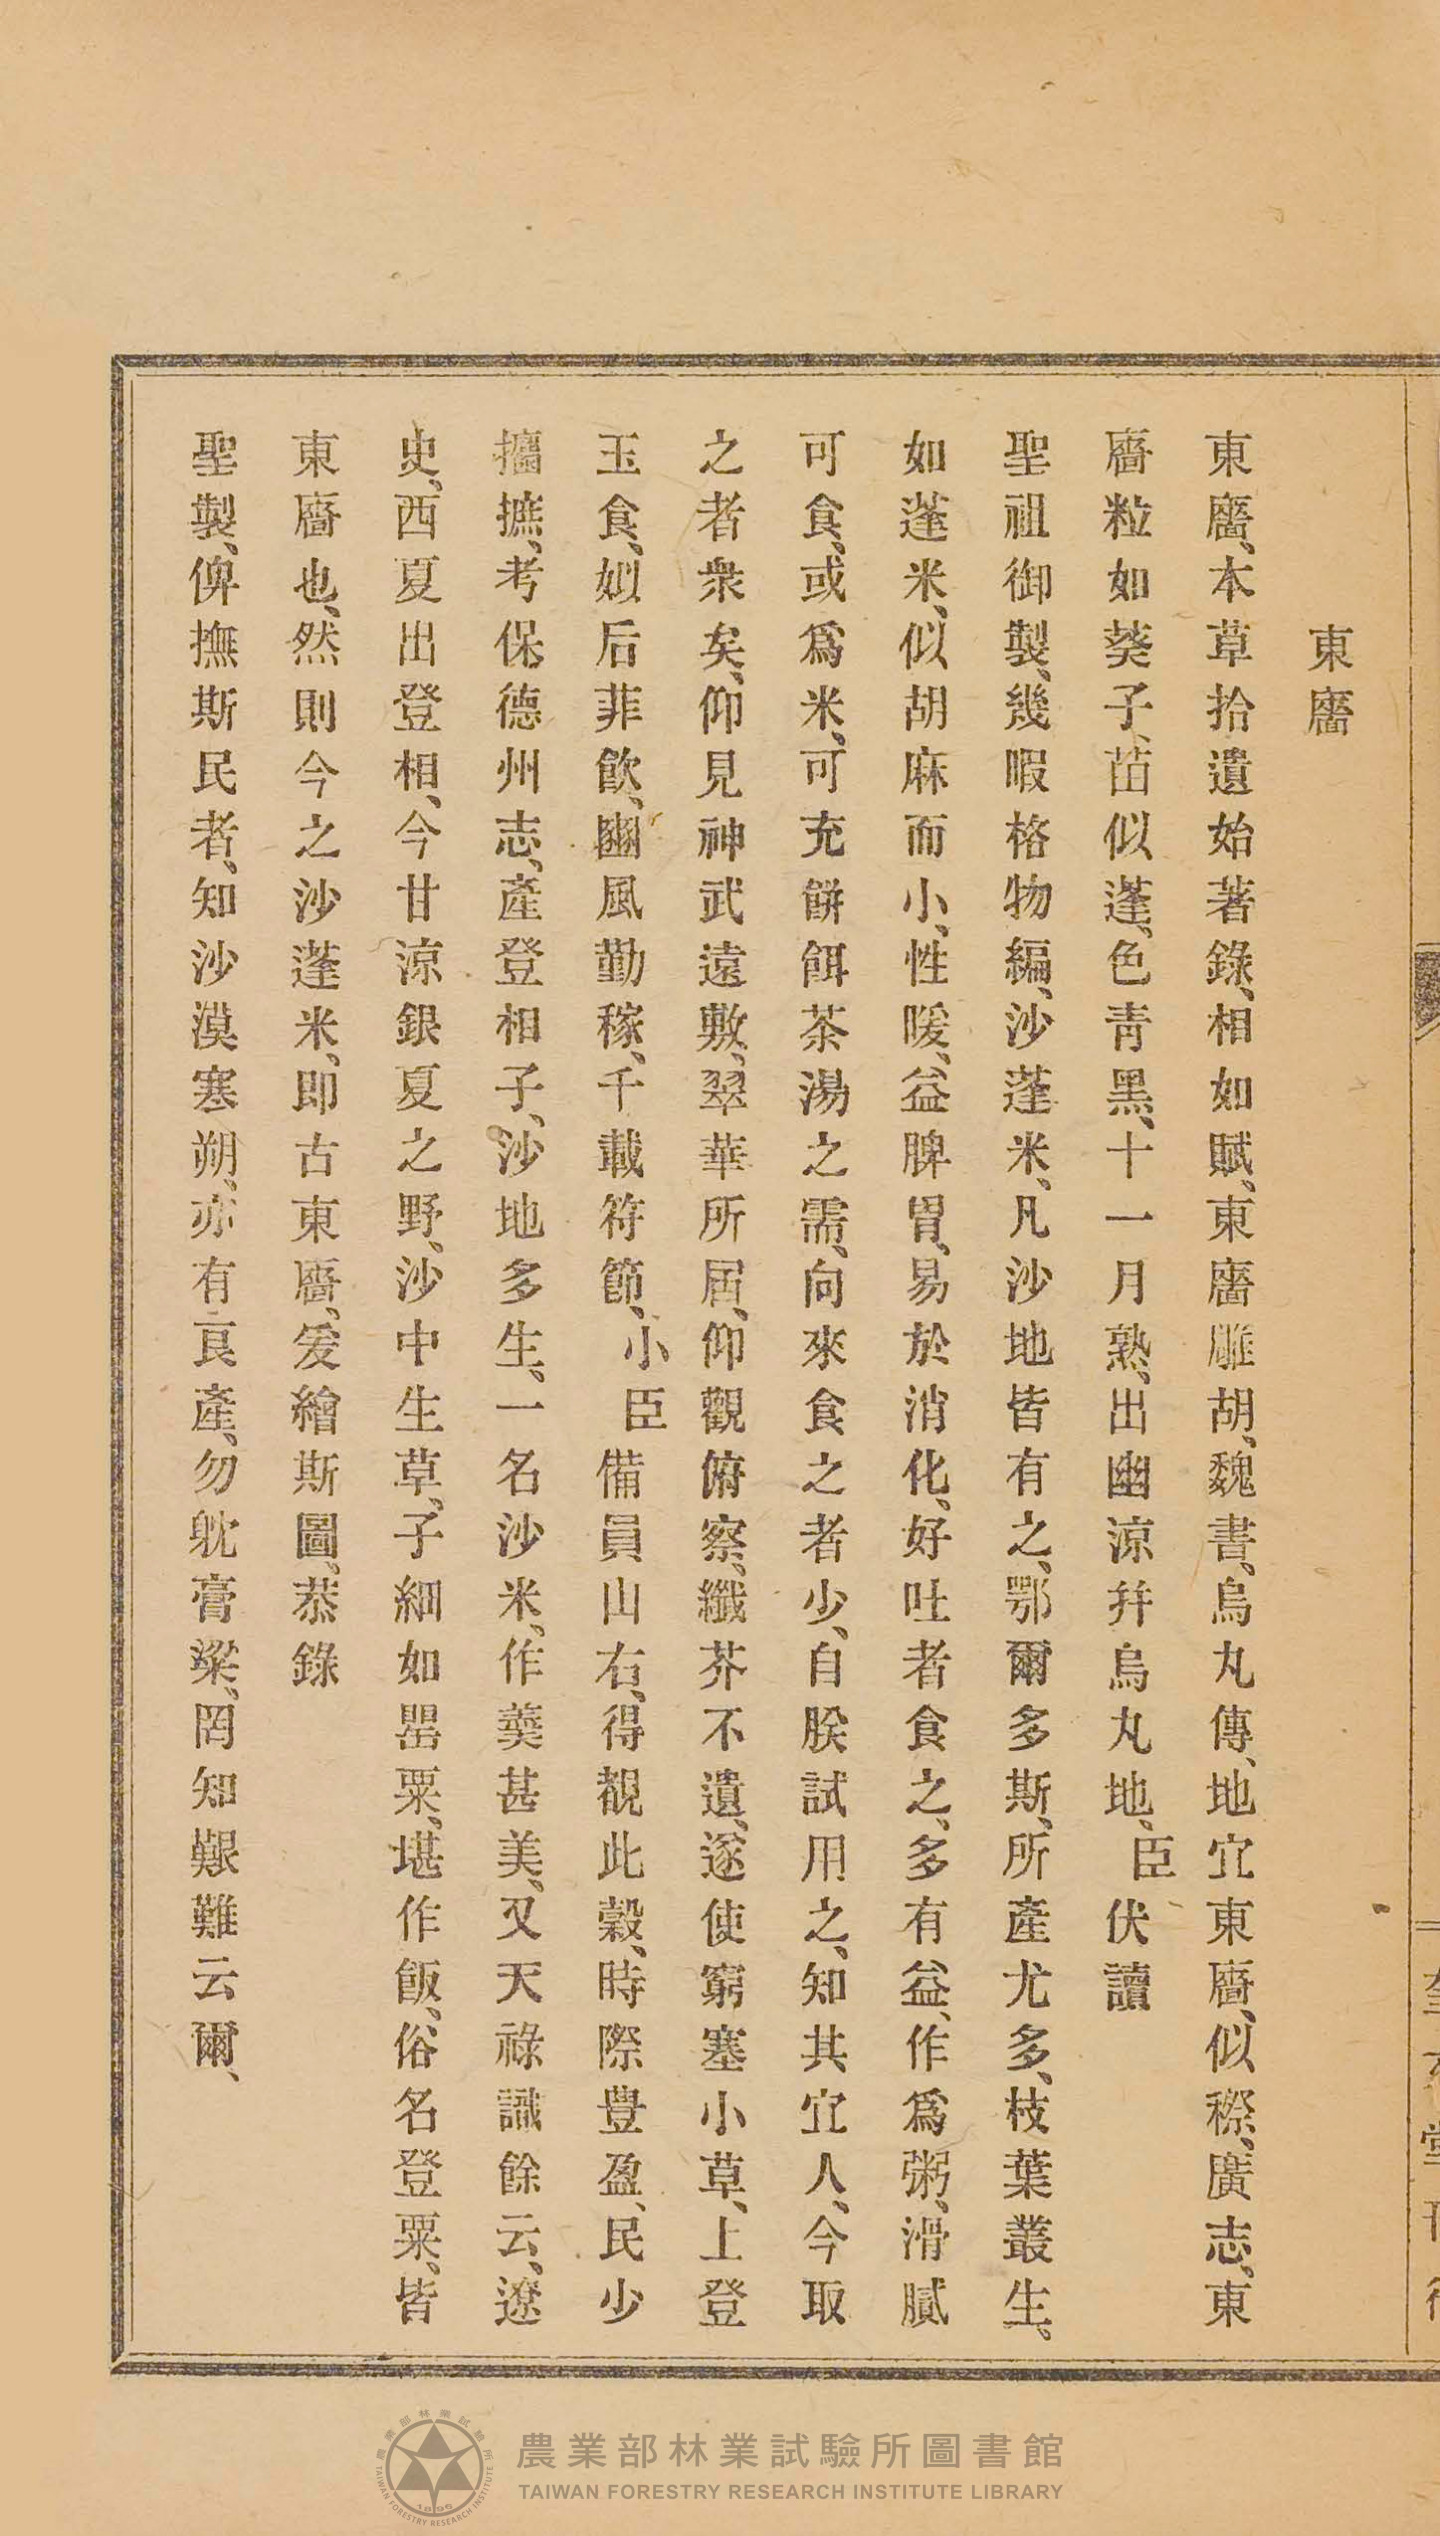 東廧
東廧、本草拾遺始著錄、相如賦、東廧雕胡、魏書、烏丸傳、地宜東廧、似穄、廣志、東
廧粒如葵子、苗似蓬、色青黑、十一月熟、出幽涼幷烏丸地、臣伏讀
聖祖御製、幾暇格物編、沙蓬米、凡沙地皆有之、鄂爾多斯、所產尤多、枝葉叢生、
如蓬米、似胡麻而小、性暖、益脾胃、易於消化、好吐者食之、多有益、作爲粥、滑膩
可食、或爲米、可充餅餌茶湯之需、向來食之者少、自朕試用之、知其宜人、今取
之者衆矣、仰見神武遠敷、翠華所屆、仰觀俯察、纖芥不遺、遂使窮塞小草、上登
玉食、姒后菲飲、豳風勤稼、千載符節、小臣備員山右、得覩此穀、時際豐盈、民少
攟摭、考保德州志、產登相子、沙地多生、一名沙米、作羹甚美、又天祿識餘云、遼
史、西夏出登相、今甘涼銀夏之野、沙中生草、子細如罌粟、堪作飯、俗名登粟、皆
東廧也、然則今之沙蓬米、即古東廧、爰繪斯圖、恭錄
聖製、俾撫斯民者、知沙漠塞朔、亦有良產、勿躭膏粱、罔知艱難云爾、
農業部林業試驗所圖書館
TAIWAN FORESTRY RESEARCH INSTITUTE LIBRARY
農業部林業試驗所
TAIWAN FORESTRY RESEARCH INSTITUTE
1896